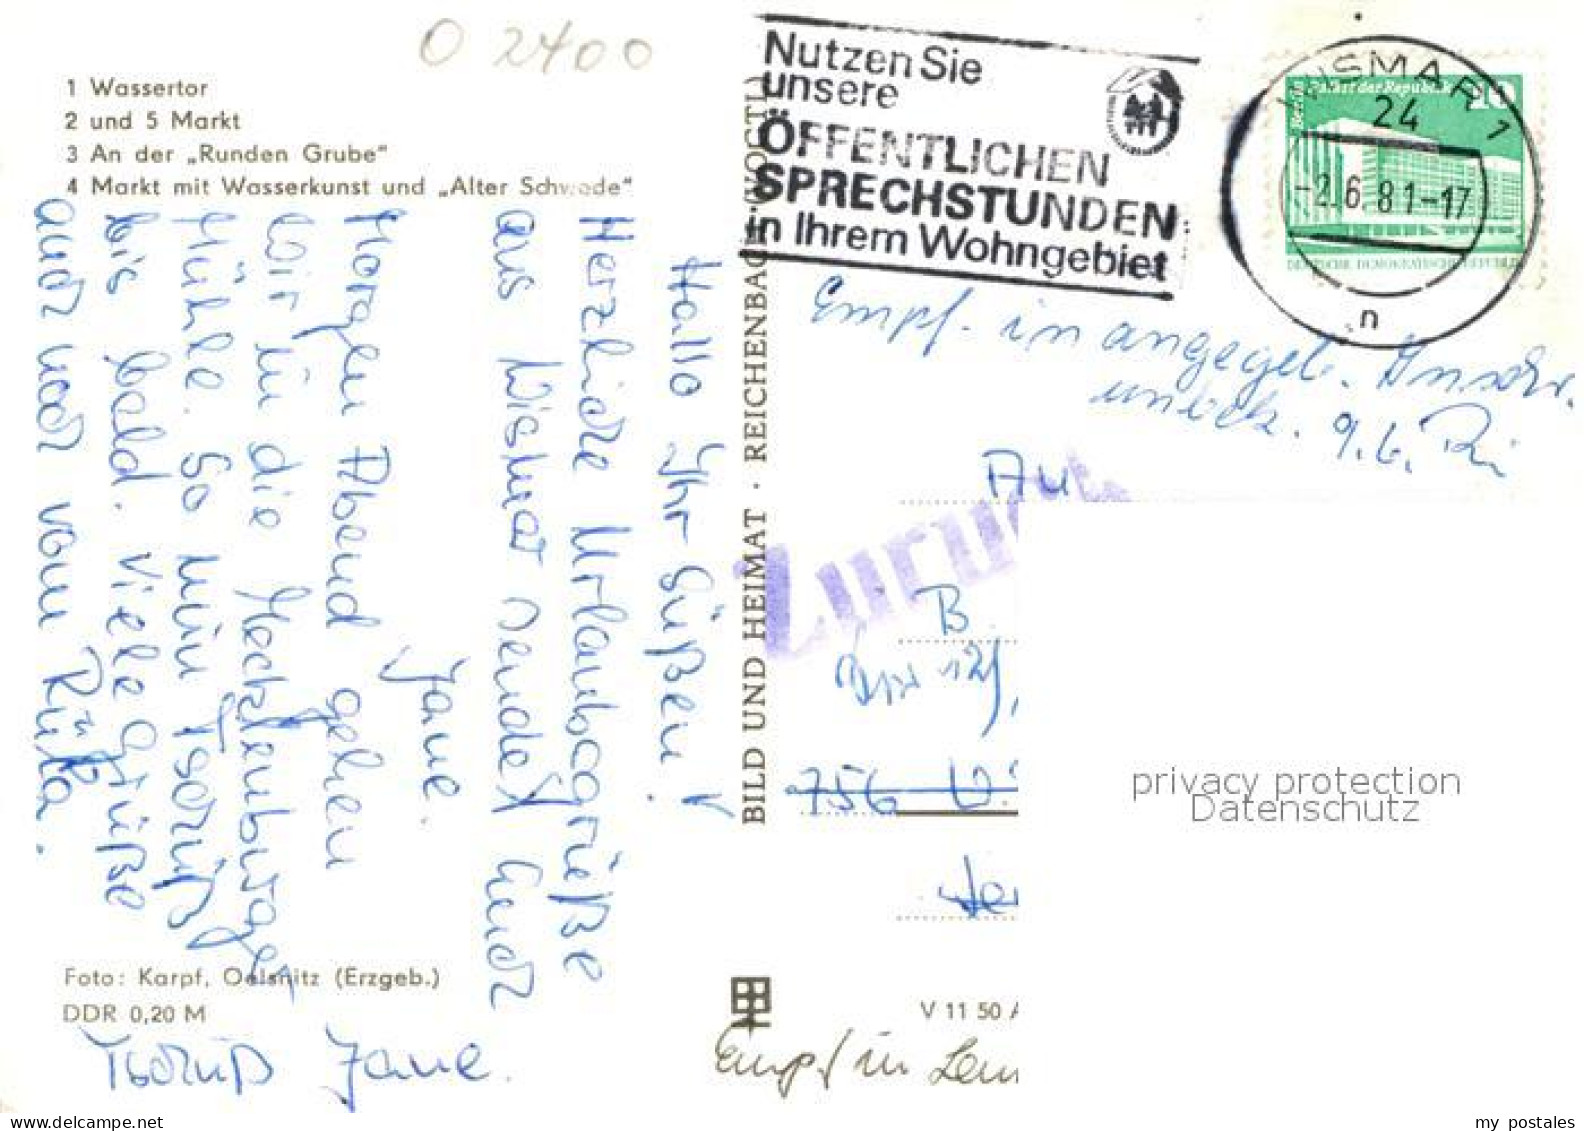 O 2400
1 Wassertor
2 und 5 Markt
3 An der „Runden Grube“
4 Markt mit Wasserkunst und „Alter Schwede“
Hallo Ihr Süßen!
Herzliche Urlaubsgrüße
aus Wismar sendet Euch
Jane.
Morgen Abend gehen
wir in die Mecklenburger
Mühle. So nun Tschüß
bis bald. Viele Grüße
auch noch vom
Tschüß Jane.
Foto: Karpf, Oelsnitz (Erzgeb.)
DDR 0,20 M
BILD UND HEIMAT · REICHENBACH (VOGTL)
V 11 50 A
Nutzen Sie
unsere
ÖFFENTLICHEN
SPRECHSTUNDEN
in Ihrem Wohngebiet
WISMAR 1
24
-2.6.81-17
n
Berlin Palast der Republik
10
DEUTSCHE DEMOKRATISCHE REPUBLIK
Empf. in angegeb. Anschr.
unbek. 9.6.
Zurück
An
B
756
Empf in
privacy protection
Datenschutz
my postales